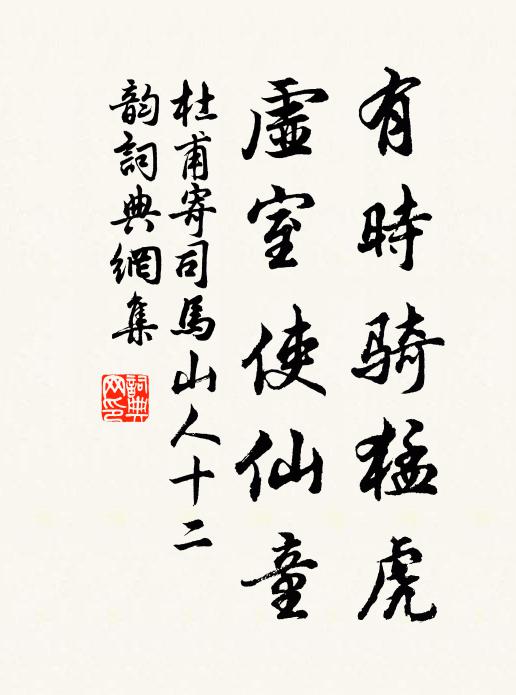 有時騎猛虎
虛室使仙童
杜甫寄司馬山人十二
韵詞典網集
詞典網印